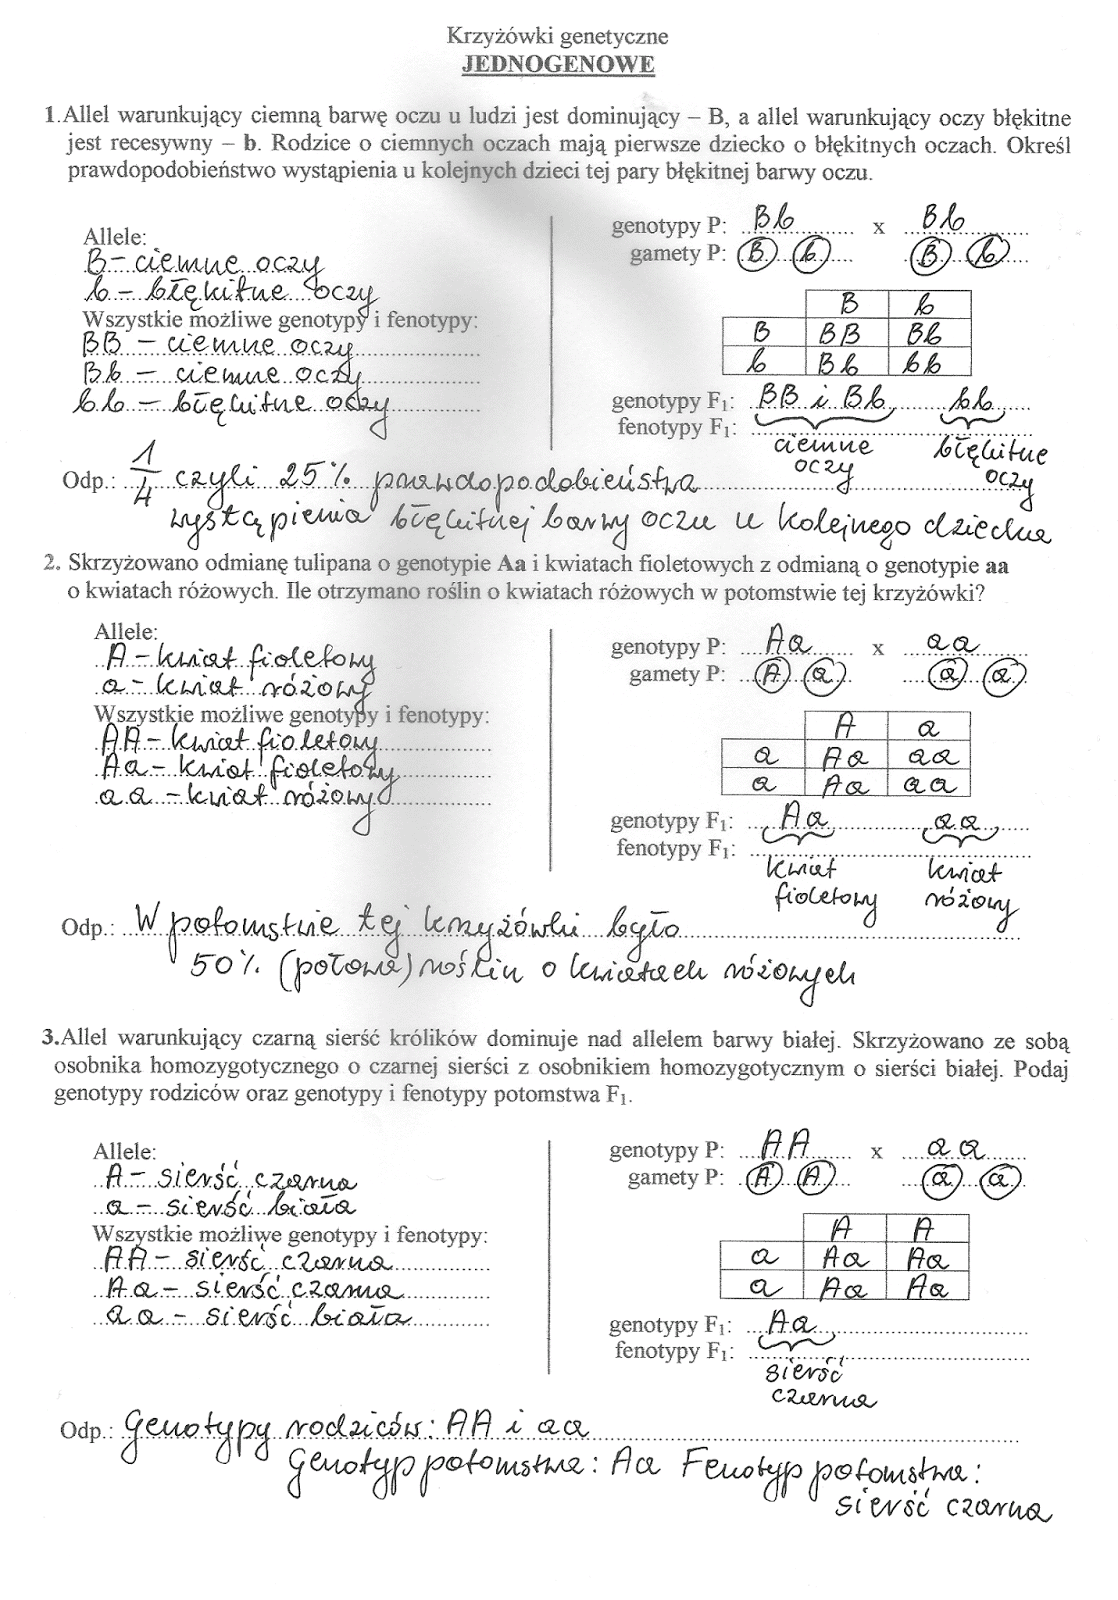 Krzyżówki genetyczne
JEDNOGENOWE
1.Allel warunkujący ciemną barwę oczu u ludzi jest dominujący – B, a allel warunkujący oczy błękitne
jest recesywny – b. Rodzice o ciemnych oczach mają pierwsze dziecko o błękitnych oczach. Określ
prawdopodobieństwo wystąpienia u kolejnych dzieci tej pary błękitnej barwy oczu.
Allele:
B – ciemne oczy
b – błękitne oczy
Wszystkie możliwe genotypy i fenotypy:
BB – ciemne oczy
Bb – ciemne oczy
bb – błękitne oczy
genotypy P: Bb x Bb
gamety P: B b B b
B b
B BB Bb
b Bb bb
genotypy F1: BB i Bb, bb
fenotypy F1:
ciemne oczy błękitne oczy
Odp.: 1/4 czyli 25% prawdopodobieństwa
wystąpienia błękitnej barwy oczu u kolejnego dziecka
2. Skrzyżowano odmianę tulipana o genotypie Aa i kwiatach fioletowych z odmianą o genotypie aa
o kwiatach różowych. Ile otrzymano roślin o kwiatach różowych w potomstwie tej krzyżówki?
Allele:
A – kwiat fioletowy
a – kwiat różowy
Wszystkie możliwe genotypy i fenotypy:
AA – kwiat fioletowy
Aa – kwiat fioletowy
aa – kwiat różowy
genotypy P: Aa x aa
gamety P: A a a a
A a
a Aa aa
a Aa aa
genotypy F1: Aa, aa
fenotypy F1:
kwiat fioletowy kwiat różowy
Odp.: W potomstwie tej krzyżówki było
50% (połowa) roślin o kwiatach różowych
3.Allel warunkujący czarną sierść królików dominuje nad allelem barwy białej. Skrzyżowano ze sobą
osobnika homozygotycznego o czarnej sierści z osobnikiem homozygotycznym o sierści białej. Podaj
genotypy rodziców oraz genotypy i fenotypy potomstwa F1.
Allele:
A – sierść czarna
a – sierść biała
Wszystkie możliwe genotypy i fenotypy:
AA – sierść czarna
Aa – sierść czarna
aa – sierść biała
genotypy P: AA x aa
gamety P: A A a a
A A
a Aa Aa
a Aa Aa
genotypy F1: Aa
fenotypy F1:
sierść
czarna
Odp.: Genotypy rodziców: AA i aa
Genotyp potomstwa: Aa Fenotyp potomstwa:
sierść czarna